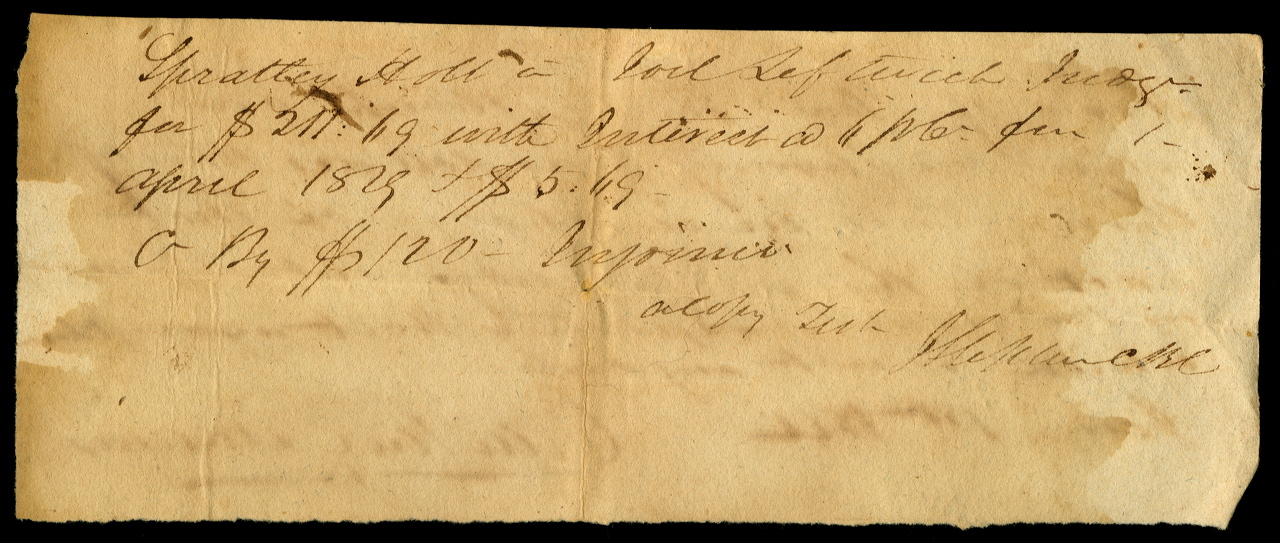 Spratley Holt a Joel Leftwich Judgt
for $211.69 with Interest @ 6 pCt from 1
april 1829 & $5.69
Cr By $120 - Injoined
a Copy Test